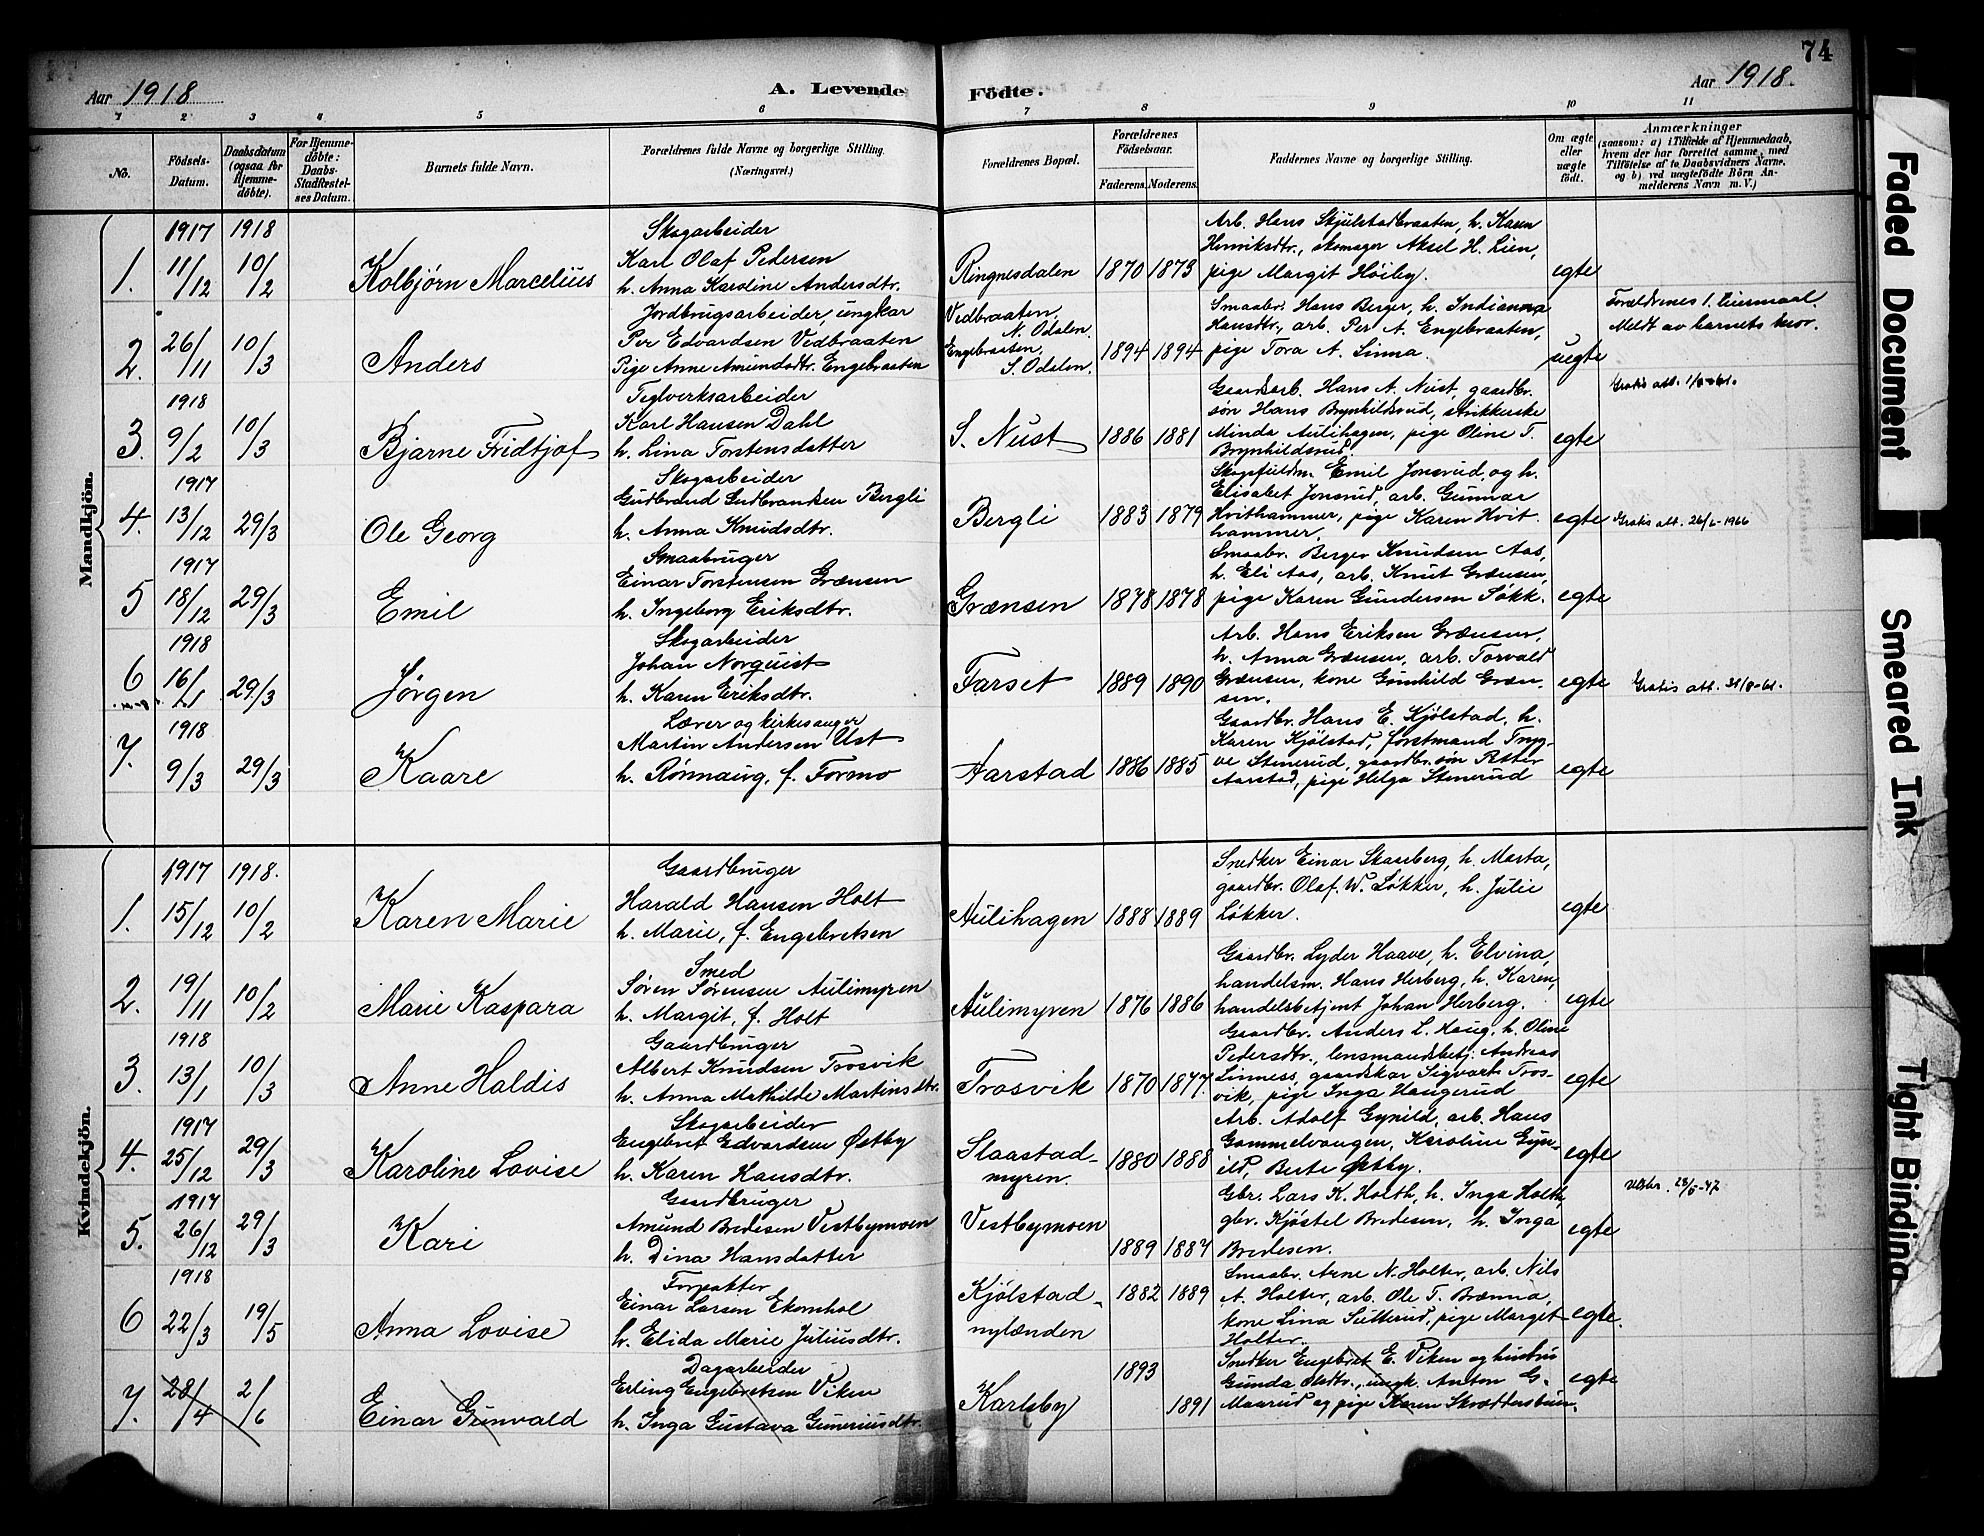 74
Aar 1918
A. Levende Fødte.
Aar 1918.
1 2 3 4 5 6 7 8 9 10 11
No.
Födsels-Datum.
Daabsdatum (ogsaa for Hjemme-döbte).
For Hjemme-döbte: Daabs-Stadfæstel-ses Datum.
Barnets fulde Navn.
Forældrenes fulde Navne og borgerlige Stilling. (Næringsvei.)
Forældrenes Bopæl.
Forældrenes Födselsaar.
Faderens. Moderens.
Faddernes Navne og borgerlige Stilling.
Om ægte eller uægte födt.
Anmærkninger
(saasom: a) i Tilfælde af Hjemmedaab, hvem der har forrettet samme, med Tilföielse af to Daabsvidners Navne, og b) ved uægtefödte Börn An-melderens Navn m. V.)
Mandkjön.
1. 1917 11/12 1918 10/2
Kolbjørn Marcelius
Skogarbeider
Karl Olaf Pedersen
h. Anna Karoline Andersdtr.
Ringnesdalen 1870 1873
Arb. Hans Skjulstadbraaten, h. Karen
Henriksdtr., skomager Aksel H. Lien,
pige Margit Høiby.
egte
2. 26/11 10/3
Anders
Jordbrugsarbeider, ungkar
Per Edvardsen Vedbraaten
Pige Anne Amundsdtr. Engebraaten
Vedbraaten, N. Odalen.
Engebraaten, S. Odalen.
1894 1894
Smaabr. Hans Berger, h. Indianna
Hansdtr., arb. Per A. Engebraaten,
pige Tora A. Linna.
uegte
Forældrenes 1. leiermaal.
Meldt av barnets mor.
3. 1918 9/2 10/3
Bjarne Fridtjof
Teglverksarbeider
Karl Hansen Dahl
h. Lina Torstensdatter
S. Nust 1886 1881
Gaardsarb. Hans A. Nust, gaardbr.
søn Hans Brynhildsrud, strikkerske
Minda Aulihagen, pige Oline T.
Brynhildsrud.
egte
4. 1917 13/12 29/3
Ole Georg
Skogarbeider
Gudbrand Gudbrandsen Bergli
h. Anna Knudsdtr.
Bergli 1883 1879
Emil Jonsrud, og h.
Elisabet Jonsrud, arb. Gunnar
Hvithammer, pige Karen Hvit-
hammer.
egte
Gratis att. 26/6-1966
5 1917 18/12 29/3
Emil
Smaabruger
Einar Torstensen Grænsen
h. Ingeborg Eriksdtr.
Grænsen 1878 1878
Smaabr. Berger Knudsen Aas,
h. Eli Aas, arb. Knut Grænsen,
pige Karen Gundersen Søkk.
egte
6 1918 16/1 29/3
Jørgen
Skogarbeider
Johan Norquist
h. Karen Eriksdtr.
Farset 1889 1890
Arb. Hans Eriksen Grænsen,
h. Anna Grænsen, arb. Torvald
Grænsen, kone Gunhild Græn-
sen.
egte
Gratis att. 31/8-61.
7. 1918 9/3 29/3
Kaare
Lærer og kirkesanger
Martin Andersen Ust
h. Rønnaug, f. Formo
Aarstad 1886 1885
Gaardbr. Hans E. Kjølstad, h.
Karen Kjølstad, forstmand Tryg-
ve Stenerud, gaardbr.søn Petter
Aarstad, pige Helga Stenerud
egte
Kvindekjön.
1. 1917 15/12 1918. 10/2
Karen Marie
Gaardbruger
Harald Hansen Holt
h. Marie, f. Engebretsen
Aulihagen 1888 1889
Snedker Einar Skaarberg, h. Marta,
gaardbr. Olaf W. Løkker, h. Julie
Løkker.
egte
2. 19/11 10/2
Marie Kaspara
Smed
Søren Sørensen Aulimyren
h. Margit, f. Holt
Aulimyren 1876 1886
Gaardbr. Lyder Haave, h. Elvina,
handelsm. Hans Herberg, h. Karen,
handelsbetjent Johan Herberg.
egte
3. 1918 13/1 10/3
Anne Haldis
Gaardbruger
Albert Knudsen Trosvik
h. Anna Mathilde Martinsdtr.
Trosvik 1870 1877.
Gaardbr. Anders L. Haug, h. Oline
Pedersdtr., lensmandsbetj. Andreas
Linness, gaardskar Sigvart Tros-
vik, pige Inga Haugerud
egte
4. 1917 25/12 29/3
Karoline Lovise
Skogarbeider
Engebret Edvardsen Østby
h. Karen Hansdtr.
Slaastad-
myren.
1880 1888
Arb. Adolf Gynild, arb. Hans
Gammelvangen, Karoline Gyn-
ild, Berte Østby.
egte
5. 1917 26/12 29/3
Kari
Gaardbruger
Amund Bredesen Vestbymoen
h. Dina Hansdatter
Vestbymoen
1889 1887
Gbr. Lars K. Holth, h. Inga Holth,
gbr. Kjøstel Bredesen, h. Inga
Bredesen.
egte
28/5-47
6 1918 22/3 19/5
Anna Lovise
Forpakter
Einar Larsen Ekornhol
h. Elida Marie Juliusdtr.
Kjølstad-
nylænden
1882 1889
Smaabr. Arne N. Holter, arb. Nils
A. Holter, arb. Ole T. Brænna,
kone Lina Sætterud, pige Margit
Holter.
egte.
7. 28/4 2/6
Einar Gunvald
Dagarbeider
Erling Engebretsen Viken
h. Inga Gustava Guneriusdtr.
Karlsby
1893
1891
Snedker Engebret E. Viken og hustru
Gunda Olsdtr., ungk. Anton G.
Maarud og pige Karen Skrædderstuen.
egte
Faded Document
Smeared Ink
Tight Binding